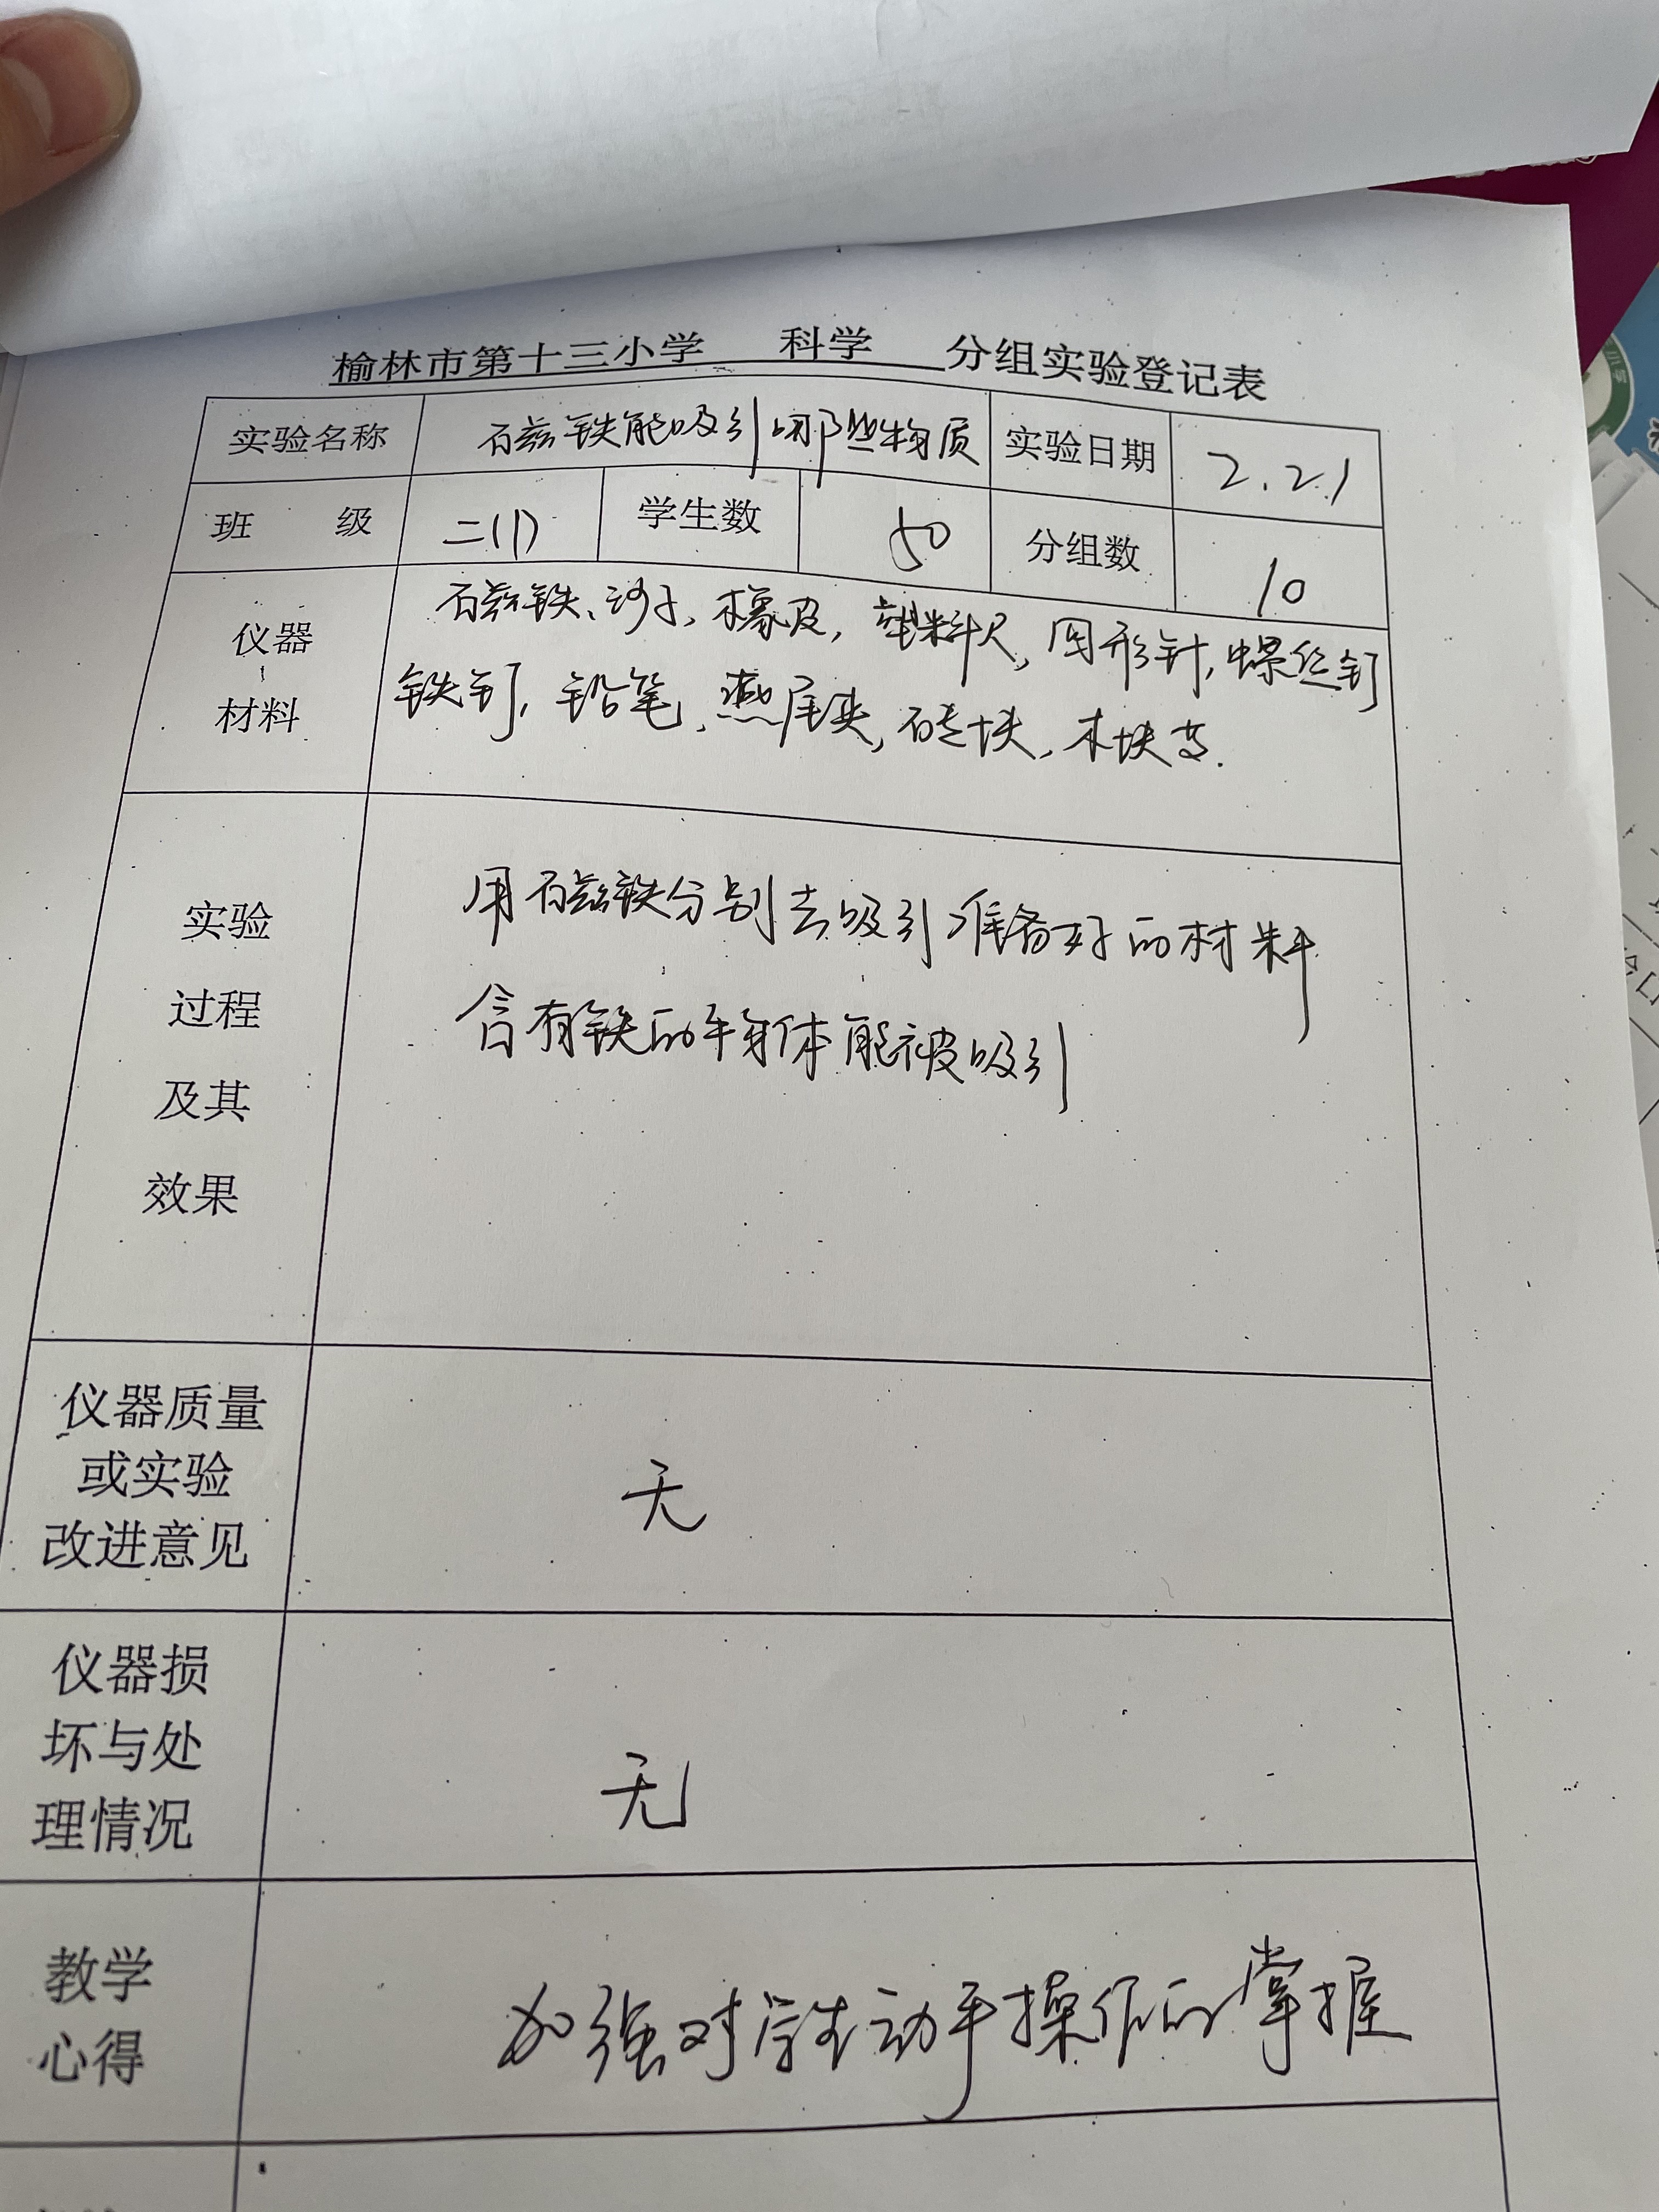 榆林市第十三小学 科学 分组实验登记表
实验名称 石磁铁能吸引哪些物质 实验日期 2.21
班 级 二(1) 学生数 50 分组数 10
仪器
材料
石磁铁、沙子,橡皮,塑料尺,回形针,螺丝钉
铁钉,铅笔,燕尾夹,砖块,木块等.
实验
过程
及其
效果
用石磁铁分别去吸引准备好的材料
含有铁的 体能被吸引
仪器质量
或实验
改进意见
无
仪器损
坏与处
理情况
无
教学
心得
加强对学生动手操作的掌握